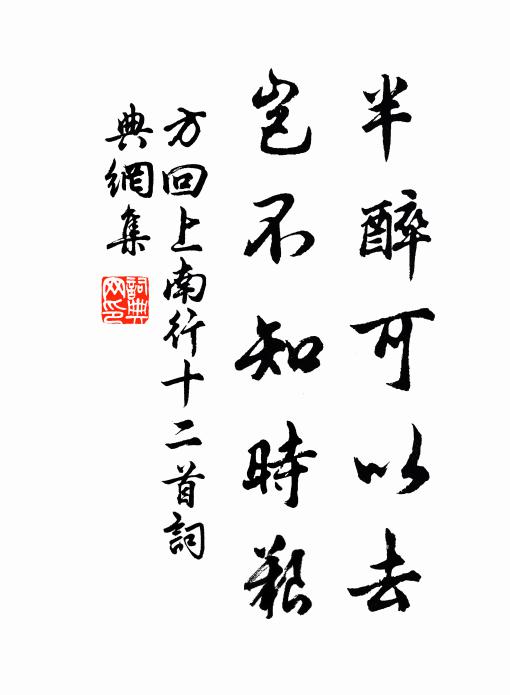 半醉可以去
豈不知時艱
方回上南行十二首詞
典網集
詞典网印